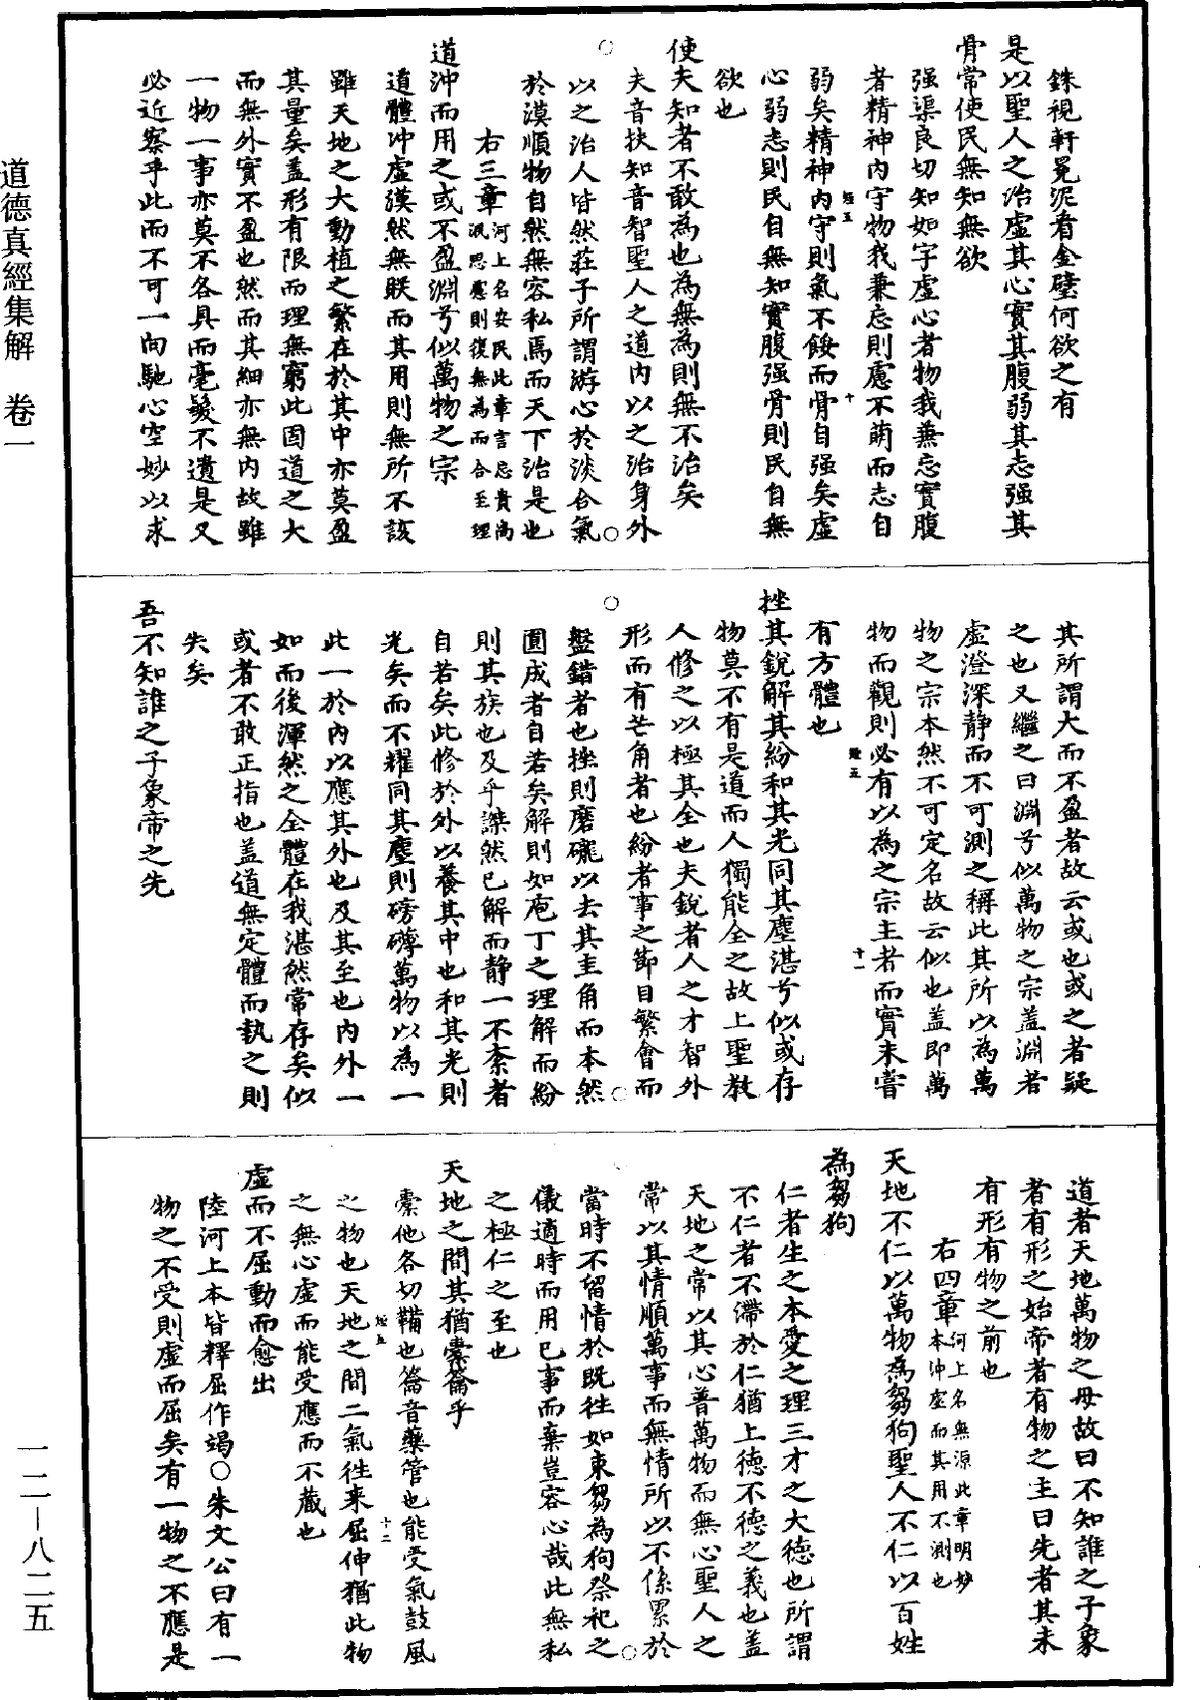 道德真經集解　卷一
銖視軒冕泥看金璧何欲之有
是以聖人之治虛其心實其腹弱其志强其
骨常使民無知無欲
强渠良切知如字虛心者物我兼忘實腹
者精神内守物我兼忘則慮不萌而志自
弱矣精神内守則氣不餒而骨自强矣虛
心弱志則民自無知實腹强骨則民自無
欲也
使夫知者不敢為也為無為則無不治矣
夫音扶知音智聖人之道内以之治身外
以之治人皆然莊子所謂游心於淡合氣
於漠順物自然無容私焉而天下治是也
右三章河上名安民此章言忘貴尚
泯思慮則復無為而合至理
道沖而用之或不盈淵兮似萬物之宗
道體沖虛漠然無朕而其用則無所不該
雖天地之大動植之繁在於其中亦莫盈
其量矣盖形有限而理無窮此固道之大
而無外實不盈也然而其細亦無内故雖
一物一事亦莫不各具而毫髮不遺是又
必近察乎此而不可一向馳心空妙以求
其所謂大而不盈者故云或也或之者疑
之也又繼之曰淵兮似萬物之宗盖淵者
虛澄深静而不可測之稱此其所以為萬
物之宗本然不可定名故云似也盖即萬
物而觀則必有以為之宗主者而實未嘗
有方體也
挫其銳解其紛和其光同其塵湛兮似或存
物莫不有是道而人獨能全之故上聖教
人修之以極其全也夫銳者人之才智外
形而有芒角者也紛者事之節目繁會而
盤錯者也挫則磨礲以去其圭角而本然
圓成者自若矣解則如庖丁之理解而紛
則其族也及乎謋然已解而静一不紊者
自若矣此修於外以養其中也和其光則
光矣而不耀同其塵則磅礴萬物以為一
此一於内以應其外也及其至也内外一
如而後渾然之全體在我湛然常存矣似
或者不敢正指也盖道無定體而執之則
失矣
吾不知誰之子象帝之先
道者天地萬物之母故曰不知誰之子象
者有形之始帝者有物之主曰先者其未
有形有物之前也
右四章河上名無源此章明妙
本沖虛而其用不測也
天地不仁以萬物為芻狗聖人不仁以百姓
為芻狗
仁者生之本愛之理三才之大德也所謂
不仁者不滯於仁猶上德不德之義也盖
天地之常以其心普萬物而無心聖人之
常以其情順萬事而無情所以不係累於
當時不留情於既往如束芻為狗祭祀之
儀適時而用已事而棄豈容心哉此無私
之極仁之至也
天地之間其猶橐籥乎
橐他各切鞴也籥音藥管也能受氣鼓風
之物也天地之間二氣往來屈伸猶此物
之無心虛而能受應而不藏也
虛而不屈動而愈出
陸河上本皆釋屈作竭○朱文公曰有一
物之不受則虛而屈矣有一物之不應是
一二—八二五